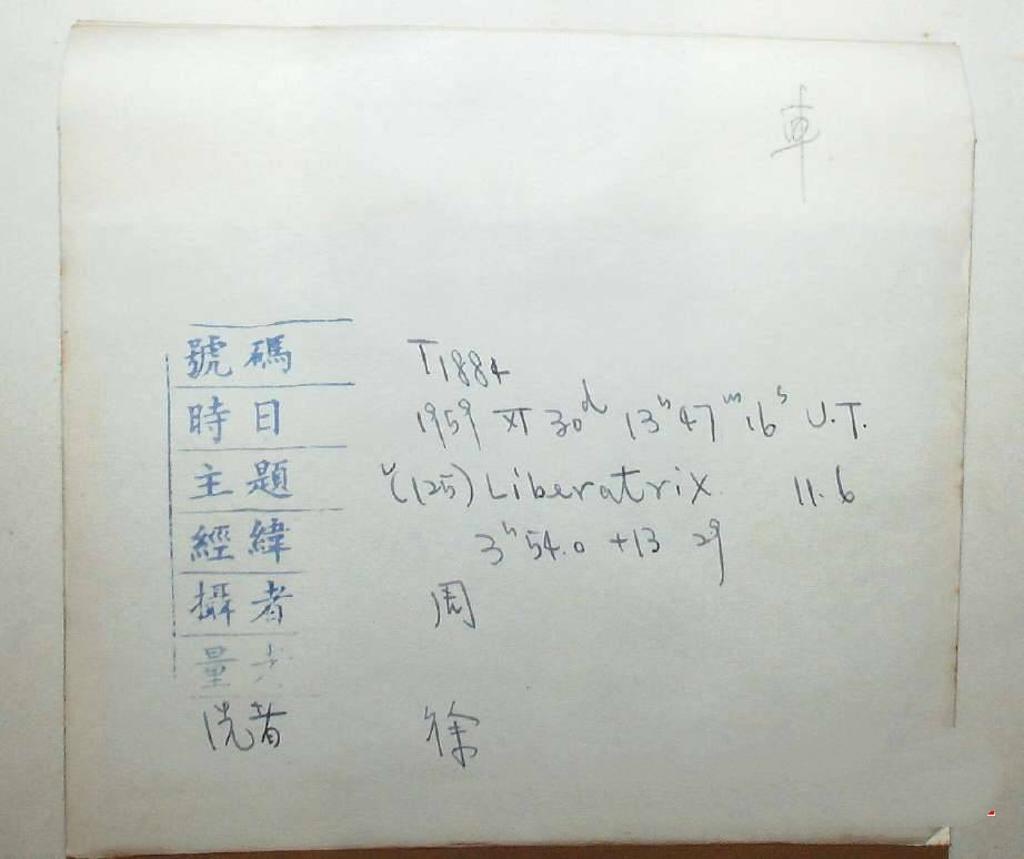 車
號碼 T1884
時日 1959 XI 30d 13h 47m 16s U.T.
主題 (125) Liberatrix 11.6
經緯 3h 54.0 +13 29
攝者 周
量者
洗者 徐